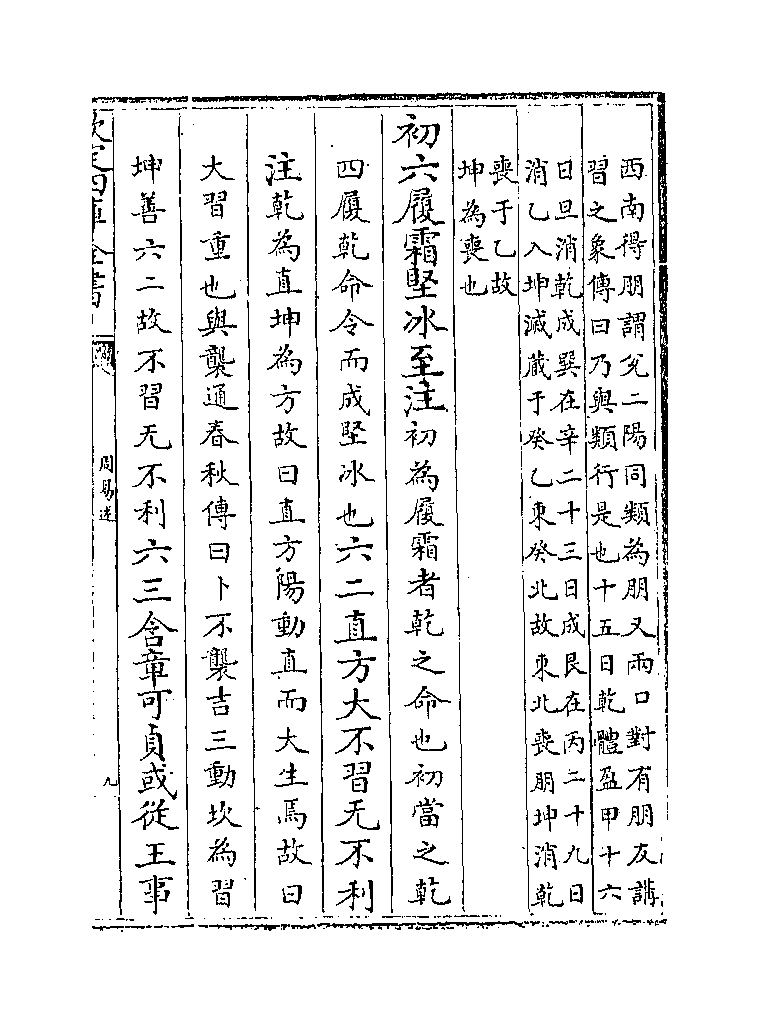 西南得朋謂兊二陽同類為朋又兩口對有朋友講
習之象傳曰乃與類行是也十五日乾體盈甲十六
日旦消乾成㢲在辛二十三日成艮在丙二十九日
消乙入坤滅藏于癸乙東癸北故東北喪朋坤消乾
喪于乙故
坤為喪也
初六履霜堅冰至注初為履霜者乾之命也初當之乾
四履乾命令而成堅冰也六二直方大不習无不利
注乾為直坤為方故曰直方陽動直而大生焉故曰
大習重也與襲通春秋傳曰卜不襲吉三動坎為習
坤善六二故不習无不利六三含章可貞或從王事
欽定四庫全書
周易述
九